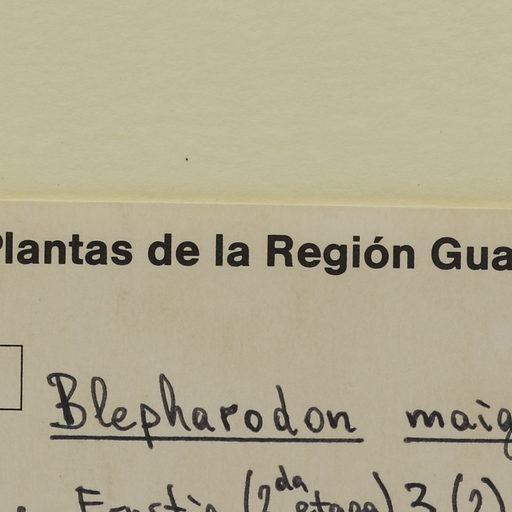 Plantas de la Región Gua
Blepharodon maig
(2da etapa) 3 (2)